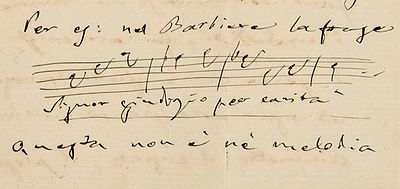 Per es: nel Barbiere la frase
Signor giudizio per carità
Questa non è nè melodia